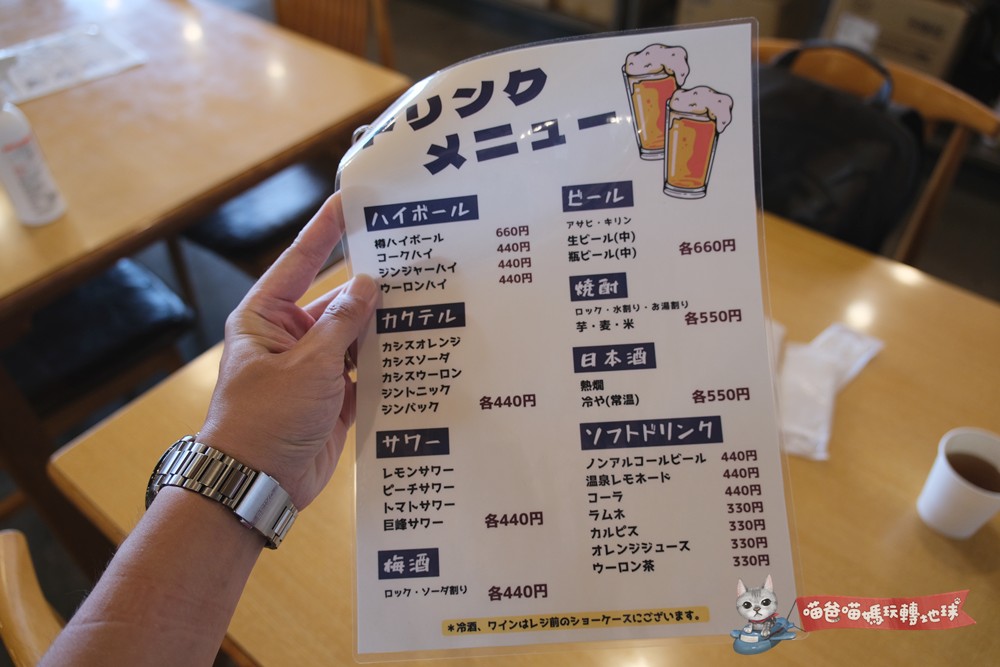 ドリンク
メニュー
ハイボール
樽ハイボール 660円
コークハイ 440円
ジンジャーハイ 440円
ウーロンハイ 440円
カクテル
カシスオレンジ
カシスソーダ
カシスウーロン
ジントニック
ジンバック 各440円
サワー
レモンサワー
ピーチサワー
トマトサワー
巨峰サワー 各440円
梅酒
ロック・ソーダ割り 各440円
ビール
アサヒ・キリン
生ビール(中)
瓶ビール(中) 各660円
焼酎
ロック・水割り・お湯割り
芋・麦・米 各550円
日本酒
熱燗
冷や(常温) 各550円
ソフトドリンク
ノンアルコールビール 440円
温泉レモネード 440円
コーラ 440円
ラムネ 330円
カルピス 330円
オレンジジュース 330円
ウーロン茶 330円
*冷酒、ワインはレジ前のショーケースにございます。
喵爸喵媽玩轉地球